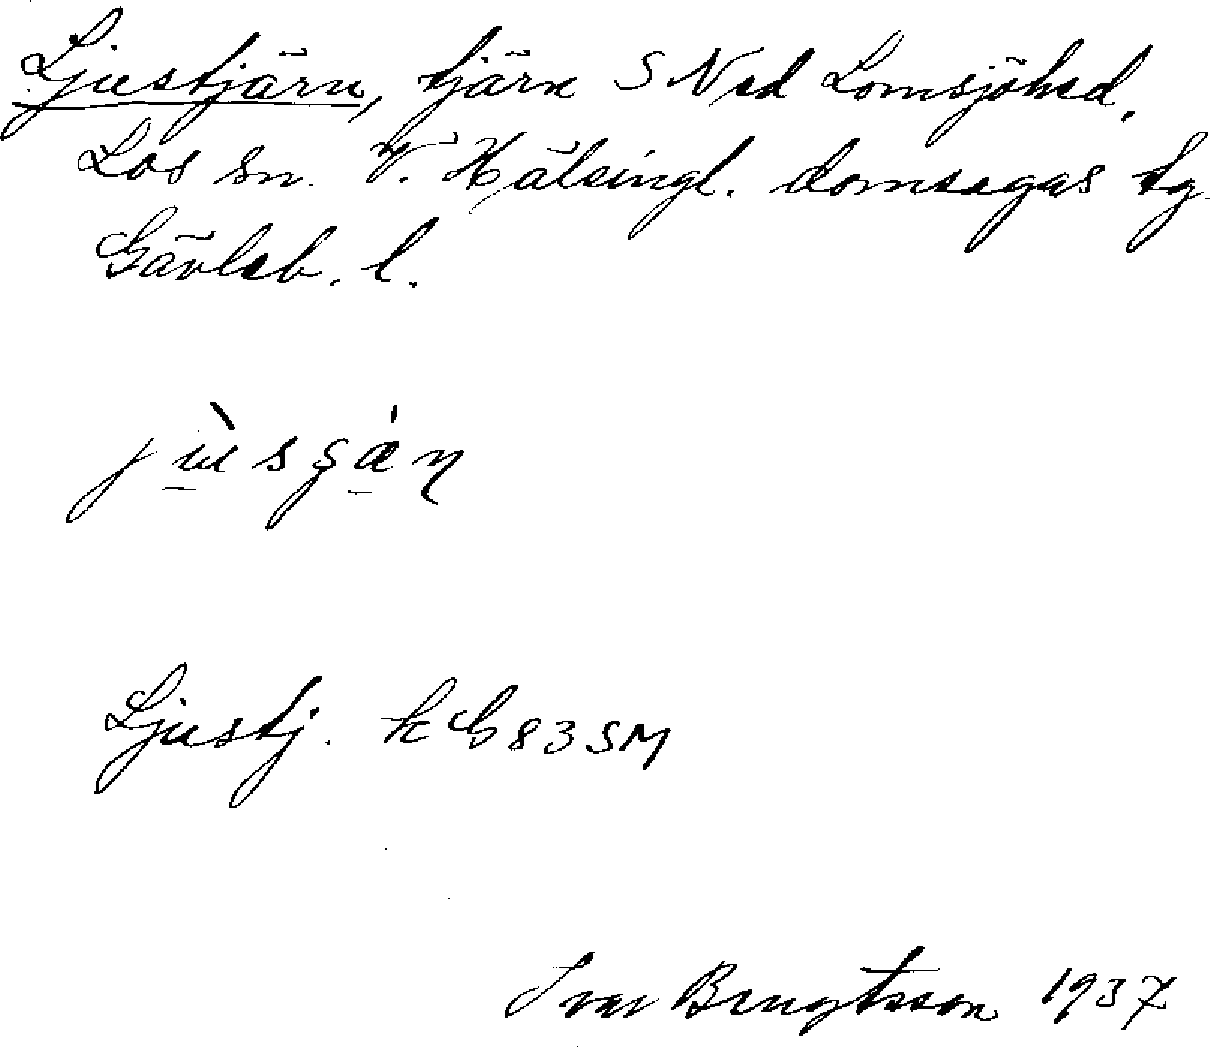 Ljustjärn, tjärn S Ned Lomsjöhed,
Los sn. V. Hälsingl. domsagas tg.
Gävleb. l.
Ljustj. k G 83 SM
Ivar Bengtsson 1937